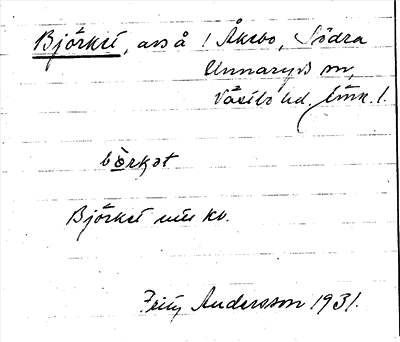 Björket, avs å 1 Åkebo, Södra
Unnaryds sn,
Västbo hd. Jönk. l.
börkət
Björket utu kv.
Fritz Andersson 1931.